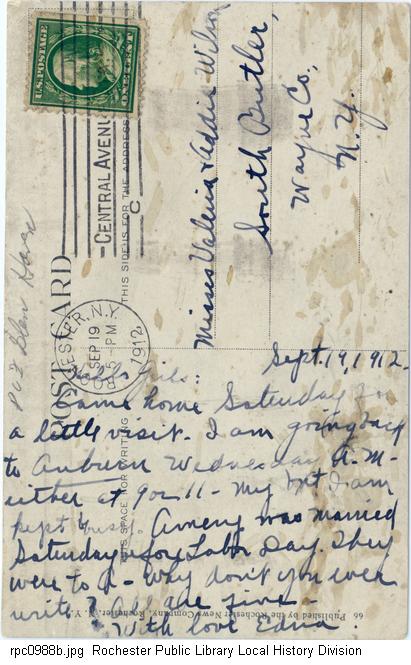 U.S. POSTAGE
ONE CENT
CENTRAL AVENUE
C
ROCHESTER, N.Y.
SEP 19
8 - PM
1912
POST CARD
THIS SIDE IS FOR THE ADDRESS
THIS SPACE FOR WRITING
Misses Valeria & Addie Wilson
South Butler,
Wayne Co.,
N. Y.
Sept. 19, 1912.
Hello Girls:
Came home Saturday for
a little visit. I am going back
to Auburn Wednesday A.M.
either at 9 or 11 - My I am
kept busy. Amery was married
Saturday before Labor Day. They
were to A - Why don't you ever
write? All are fine -
With love Edna.
66 Published by the Rochester News Company, Rochester, N. Y.
rpc0988b.jpg Rochester Public Library Local History Division